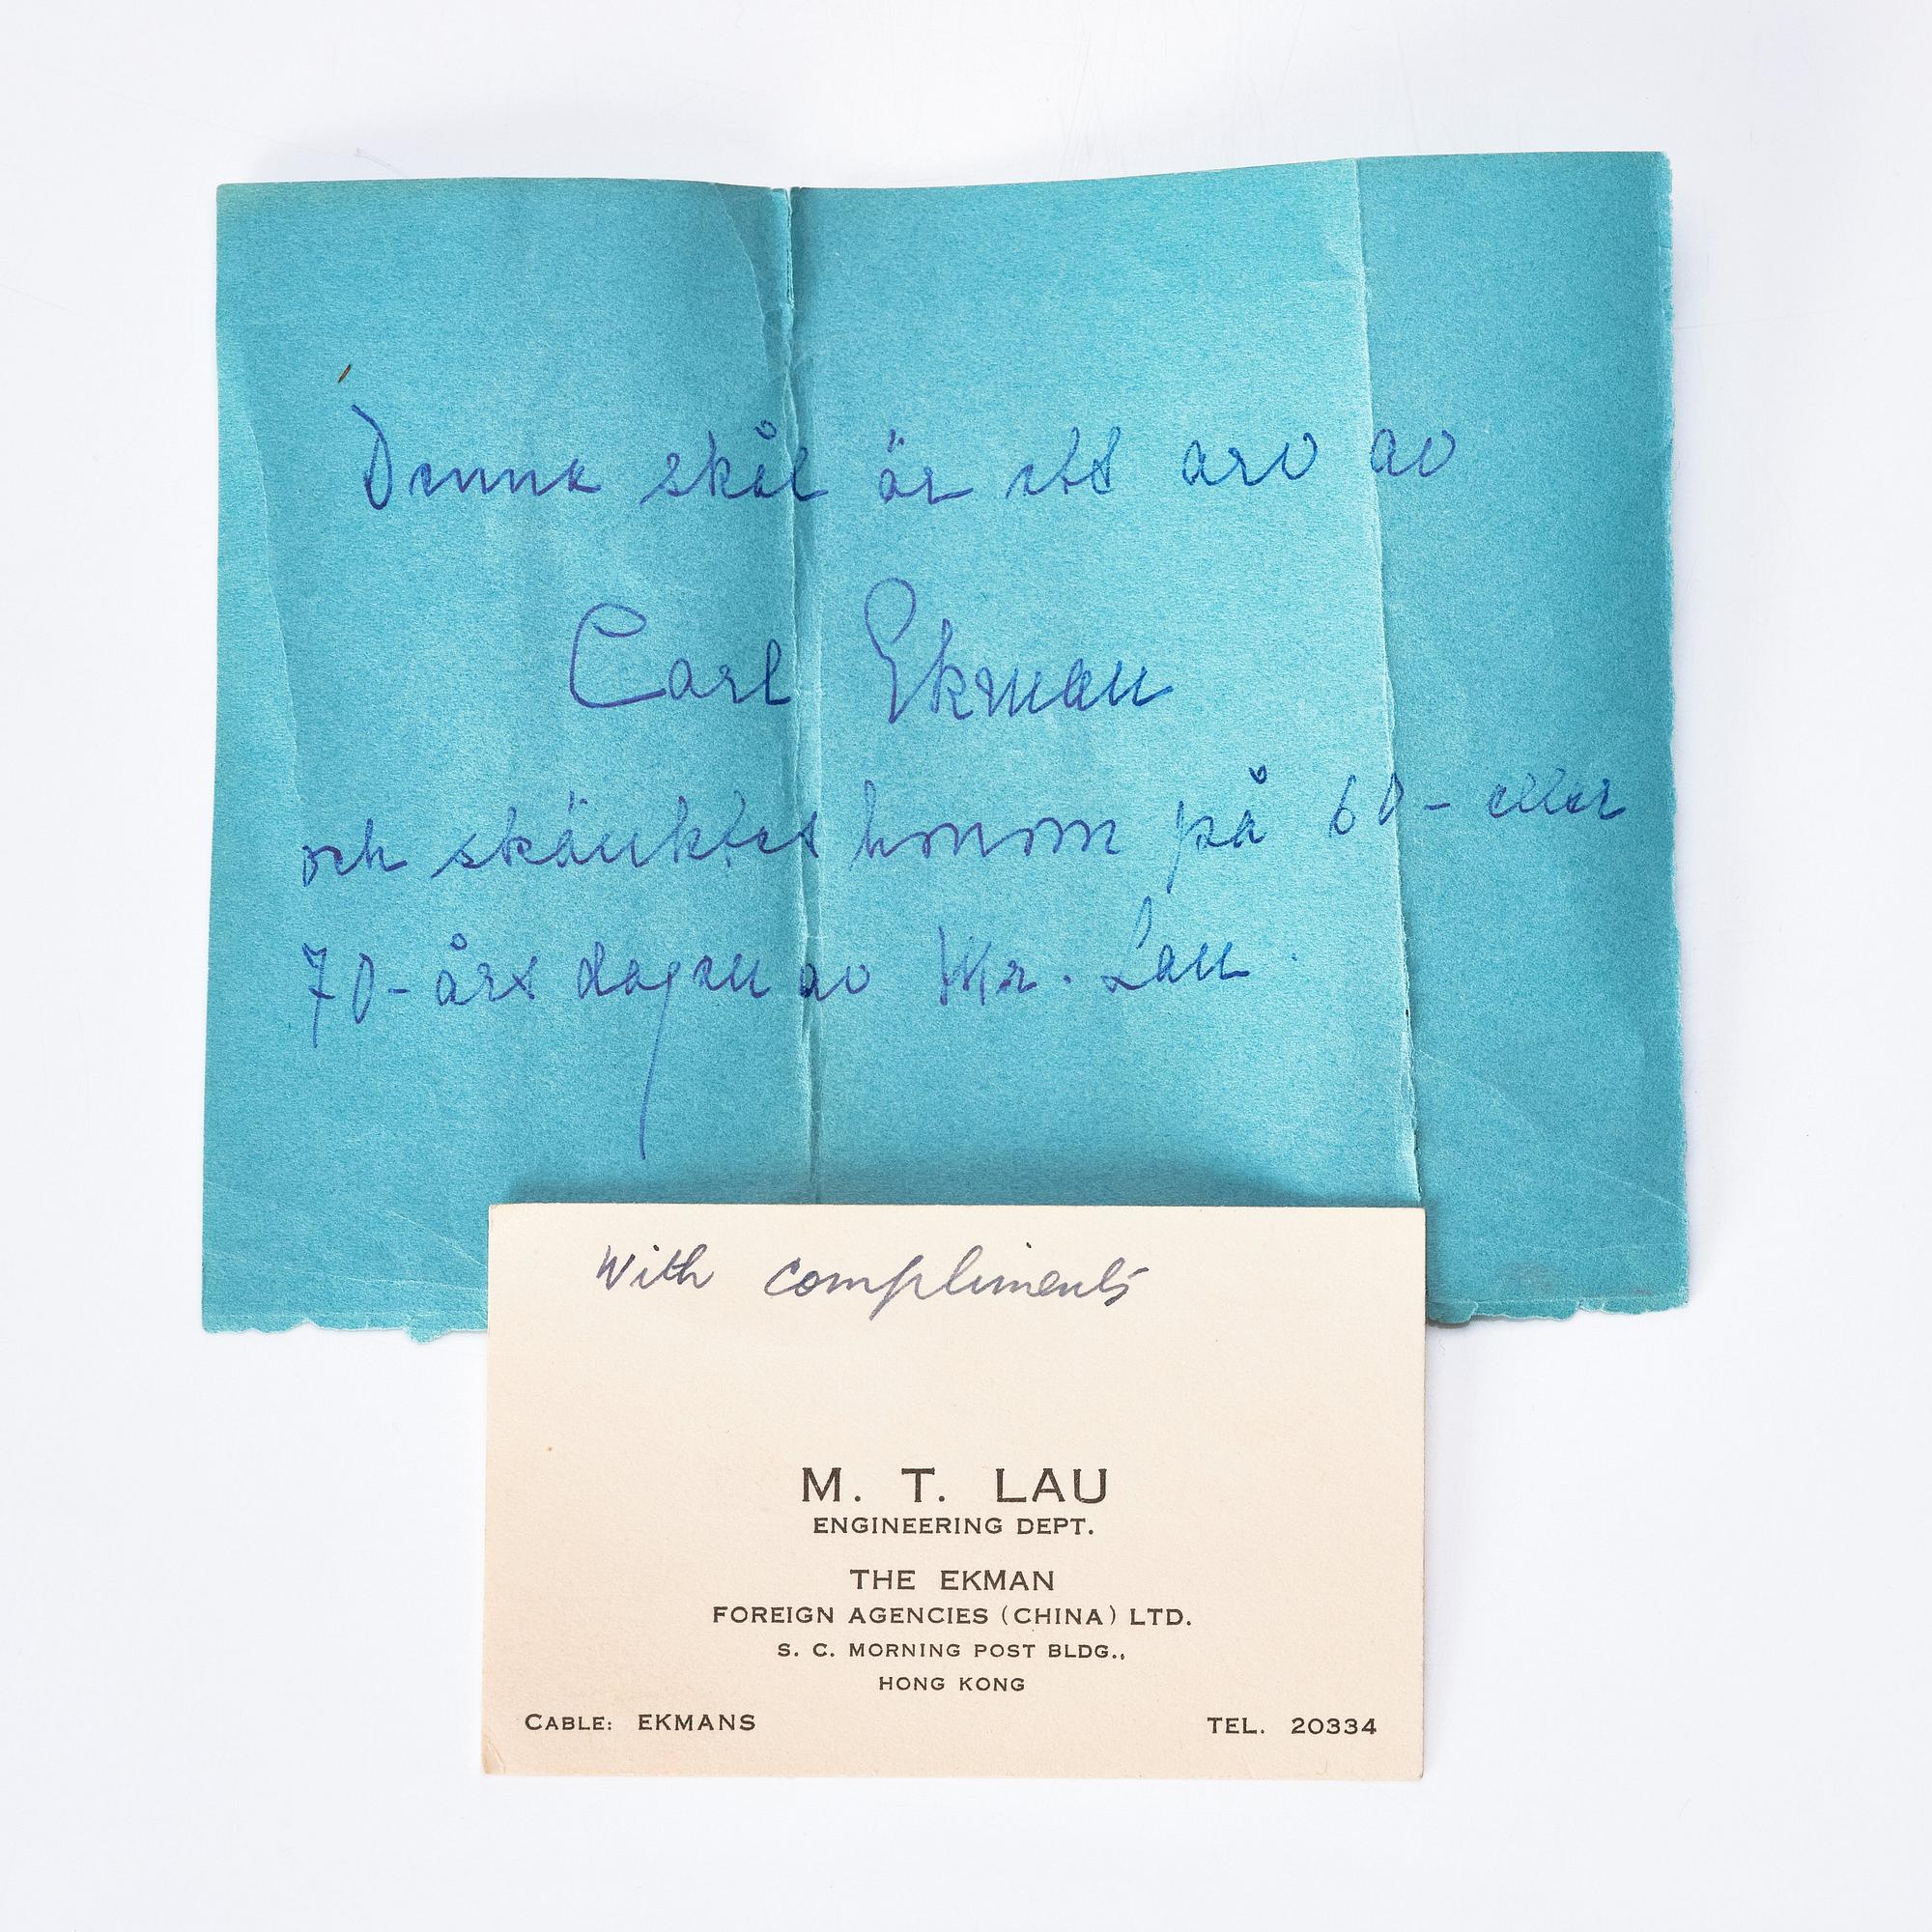 Denna skål är ett arv av
Carl Ekman
och skänktes honom på 60- eller
70-års dagen av Mr. Lau.
With compliments
M. T. LAU
ENGINEERING DEPT.
THE EKMAN
FOREIGN AGENCIES (CHINA) LTD.
S. C. MORNING POST BLDG.,
HONG KONG
CABLE: EKMANS TEL. 20334